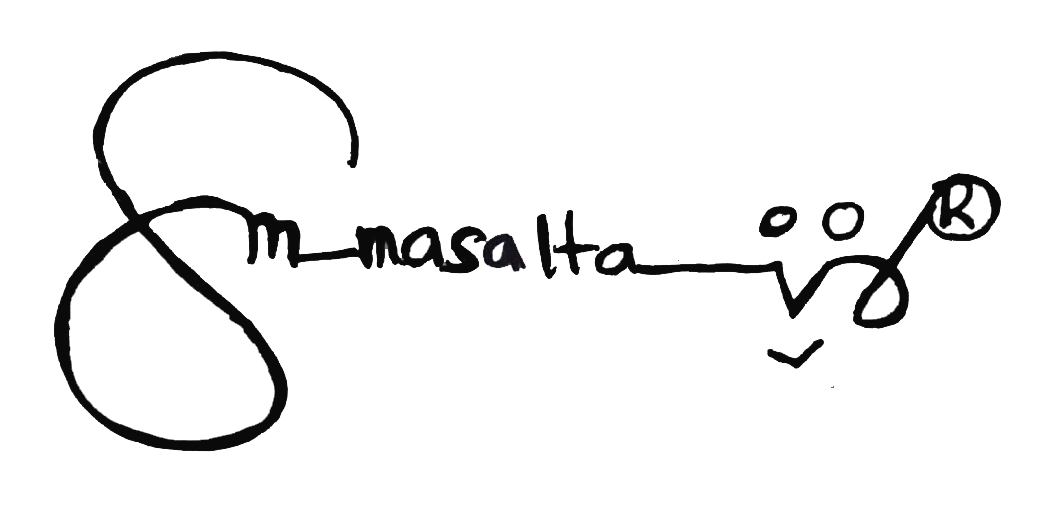 Sm_masalta ®